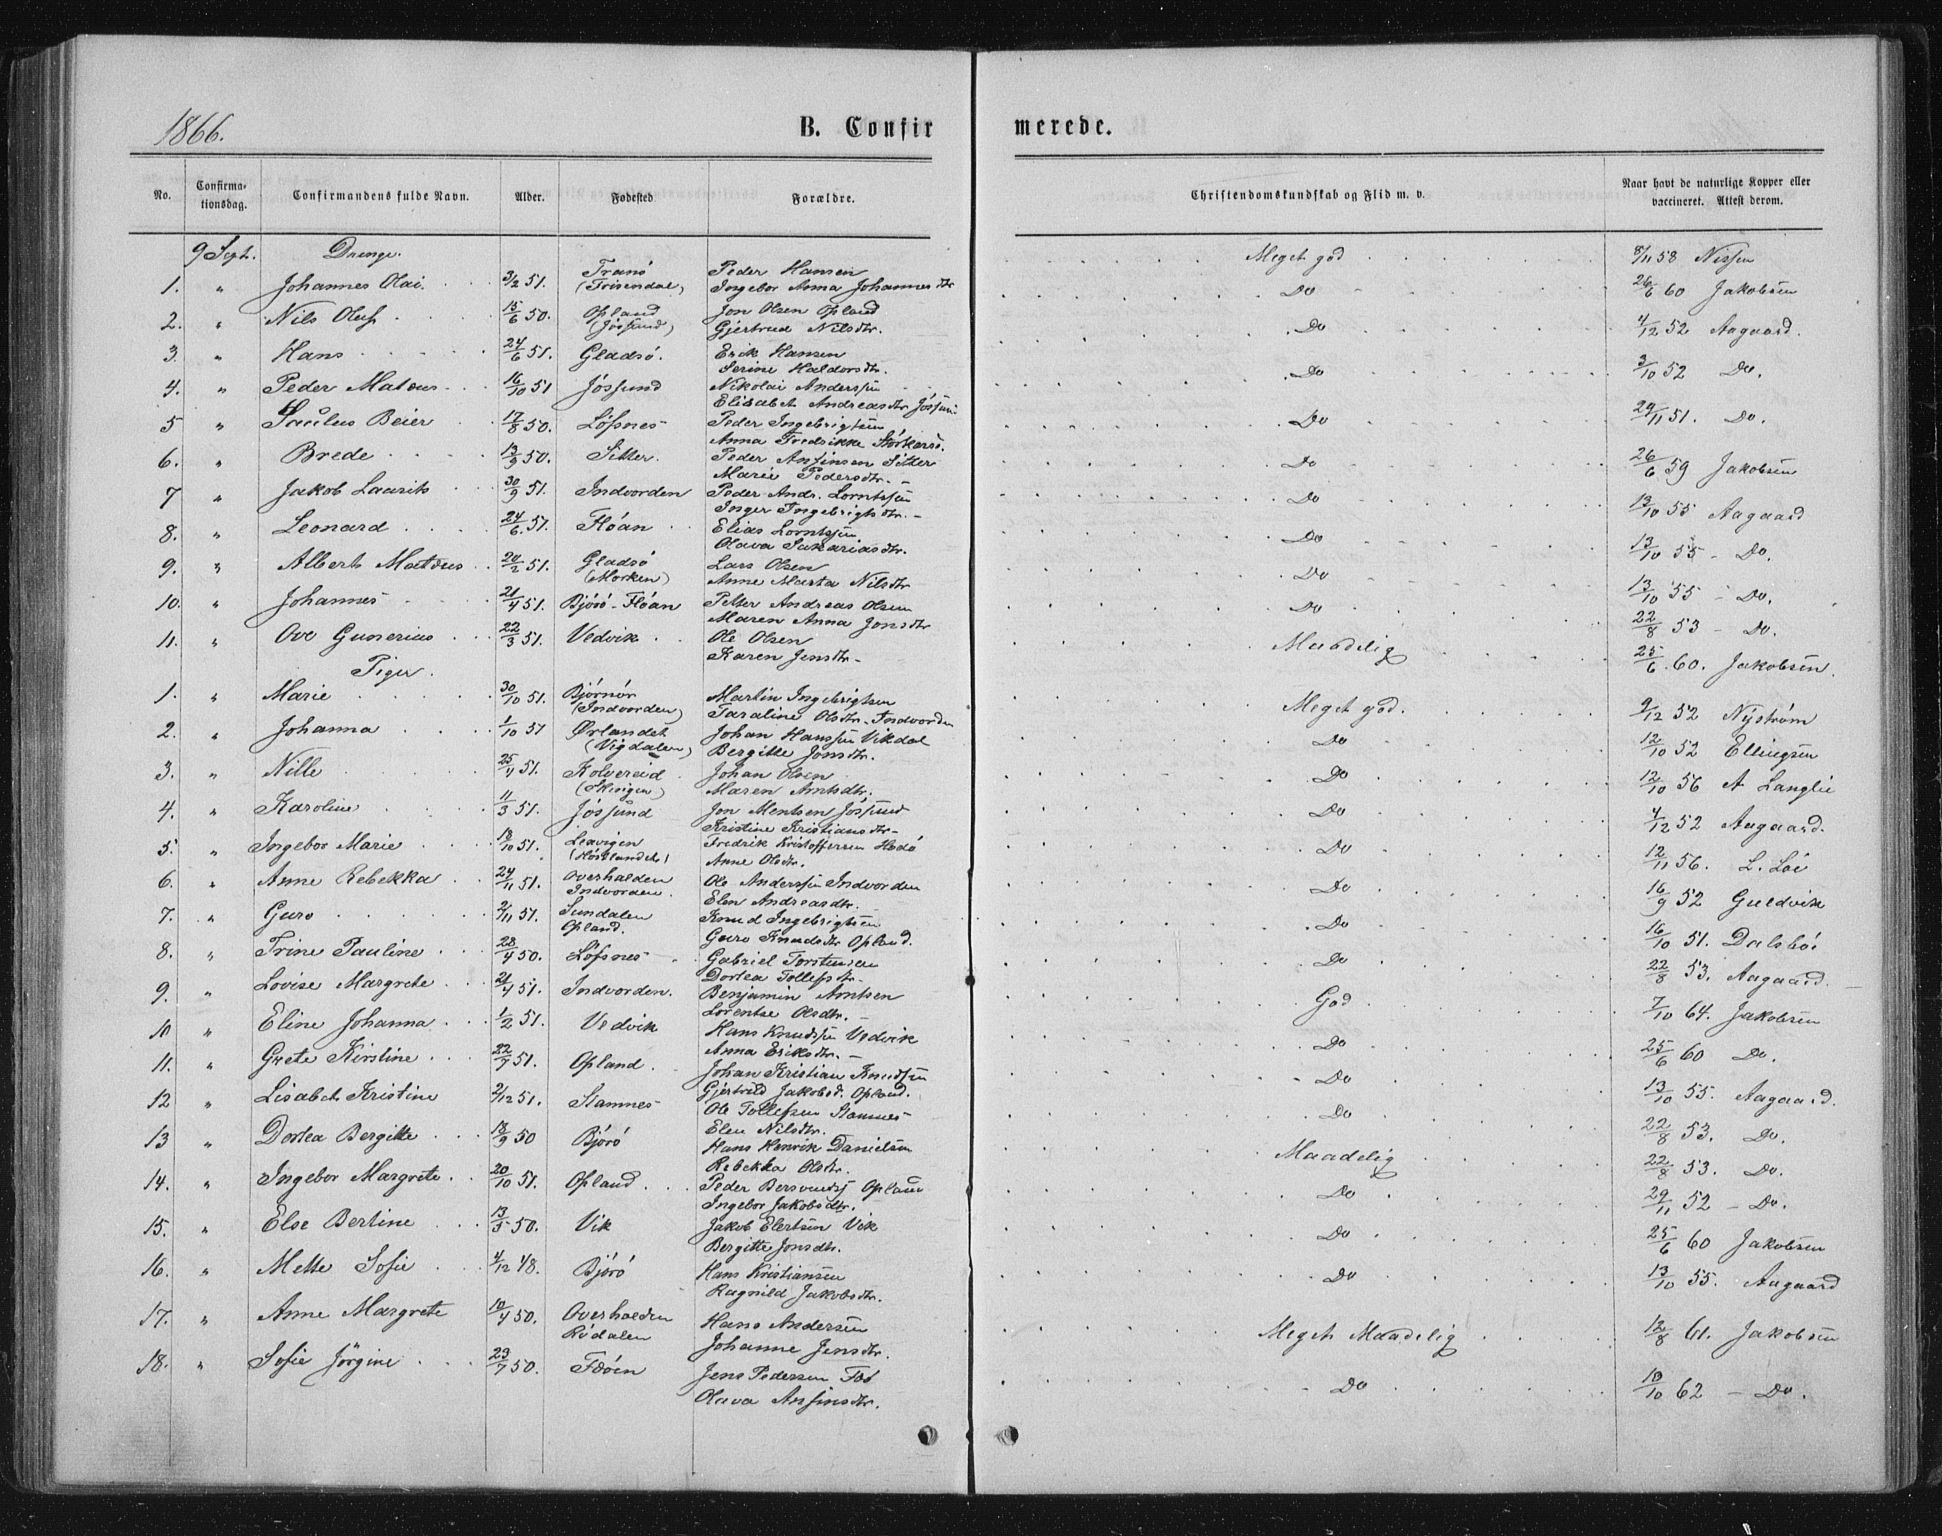 1866.
B. Confirmerede.
No. Confirmationsdag. Confirmandens fulde Navn. Alder. Fødested Forældre. Christendomskundskab og Flid m. v. Naar havt de naturlige Kopper eller vaccineret. Attest derom.
9 Sept. Drenge.
1. " Johannes Olai. 3/2 51. Tranø (Frisendal) Peder Hansen Ingebor Anna Johannesdtr Meget god 8/11 58 Nissen
2. " Nils Oluf 15/6 50. Opland (Jössund) Jon Olsen Opland Gjertrud Nilsdtr. Do 26/6 60 Jakobsen
3. " Hans 24/6 51. Gladsö. Erik Hansen Serine Haldorsdtr. Do 4/12 52 Aagaard.
4. " Peder Mateus 16/10 51 Jössund Nikolai Anderssen Elisabet Andreasdtr Jössund Do 3/10 52 Do.
5 " Paulus Beier 17/8 50. Löfsnes Peder Ingebrigtsen Anna Fredrikke Do 29/11 51. Do.
6. " Brede 13/9 50. Sitter. Peder Ansinsen Sitter Marie Pedersdtr. Do 26/6 59 Jakobsen
7 " Jakob Laurits 30/9 51. Indvorden Peder Andr. Lorntssen Inger Ingebrigtsdtr. Do 13/10 55 Aagaard
8. " Leonard 24/6 51. Flöan Elias Lorntssen. Olava Sakariasdtr. Do 13/10 55 - Do.
9. " Albert Mateus 20/2 51. Gladsö (Morken) Lars Olsen Anne Marta Nilsdtr Do 13/10 55 - Do.
10. " Johannes 21/4 51. Björö-Flöan Petter Andreas Olsen Maren Anna Jonsdtr Do 22/8 53 - Do.
11. " Ove Gunerius 22/3 51. Vedvik Ole Olsen Karen Jensdtr. Maadelig 25/6 60. Jakobsen.
Piger.
1. " Marie 30/10 51. Bjørnør (Indvorden) Martin Ingebrigtsen Taraline Olsdtr. Indvorden Meget god. 9/12 52 Nyström
2. " Johanna 1/10 51 Ørlandet (Vigdalen) Johan Hanssen Vikdal Bergitte Jonsdtr. Do 12/10 52 Ellingsen
3. " Nille 25/4 51. Kolvereid (Skingen) Johan Olsen Maren Arntsdtr. Do 12/10 56 A Langlie
4. " Karoline 11/3 51. Jössund Jon Mentsen Jössund Kristine Kristiansdtr. Do 4/12 52 Aagaard.
5. " Ingebor Marie 18/10 51. Leavigen Fredrik Kristoffersen Hodö Anne Olsdtr. Do 12/11 56. L. Löe
6. " Anne Rebekka 24/11 51. Overhalden Indvorden. Ole Anderssen Indvorden Elen Andreasdtr. Do 16/9 52 Guldvik
7. " Guro 2/11 51. Sundalen Opland. Knud Ingebrigtsen Guro Knudsdtr Opland. Do 16/10 51. Dalsbö
8. " Trine Pauline 28/4 50. Löfsnes Gabriel Torstensen Dortea Tollefsdtr. Do 22/8 53. Aagaard.
9. " Lovise Margrete 21/4 51. Indvorden. Benjamin Arntsen Lorentse Olsdtr. God 7/10 64. Jakobsen
10 " Eline Johanna 1/2 51. Vedvik Hans Knudssen Vedvik Anna Eriksdtr. Do 25/6 60 Do.
11. " Grete Kirstine 22/7 51. Opland. Johan Kristian Knudsen Gjertrud Jakobsd. Opland. Do 13/10 55. Aagaard.
12 " Lisabet Kristine 2/12 51. Stamnes Ole Tollefsen Stamnes Elen Nilsdtr. Do 22/8 53. Do.
13 " Dortea Bergitte 18/9 50 Björö Hans Henrik Danielsen Rebekka Olsdtr. Maadelig 22/8 53. Do.
14. " Ingebor Margrete 20/10 51. Opland. Peder Bersvends Opland Ingebor Jakobsdtr. Do 29/11 52 - Do.
15. " Else Bertine 13/5 50. Vik Jakob Elertsen Vik Bergitte Jonsdtr. Do 25/6 60 Jakobsen
16. " Mette Sofie 4/12 48. Björö Hans Kristiansen Ragnild Jakobsdtr. Do 13/10 55. Aagaard
17. " Anne Margrete 10/4 50. Overhalden Rödalen Hans Andersen Johanne Jensdtr. Meget Maadelig 12/8 61. Jakobsen
18. " Sofie Jörgine 23/7 50. Föoen Jens Pedersen Olava Ansinsdtr. Do 10/10 62 - Do.